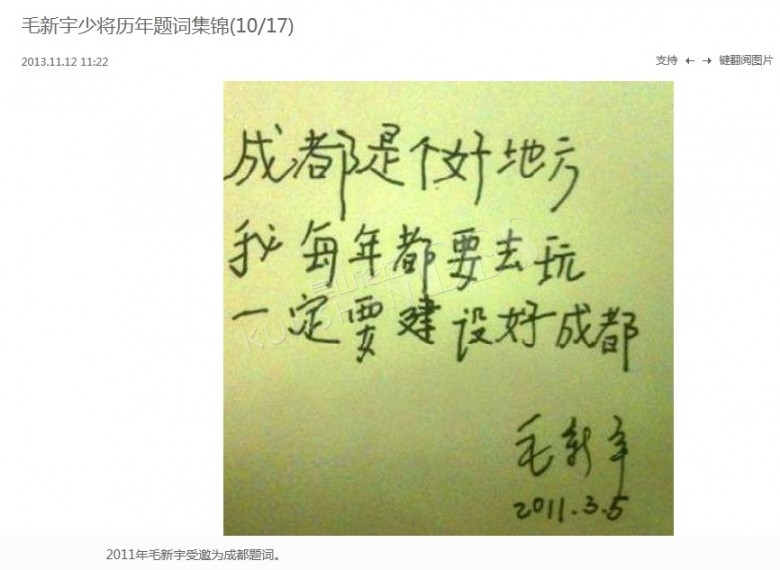 毛新宇少将历年题词集锦(10/17)
2013.11.12 11:22
支持 ← → 键翻阅图片
成都是个好地方
我每年都要去玩
一定要建设好成都
毛新宇
2011.3.5
2011年毛新宇受邀为成都题词。